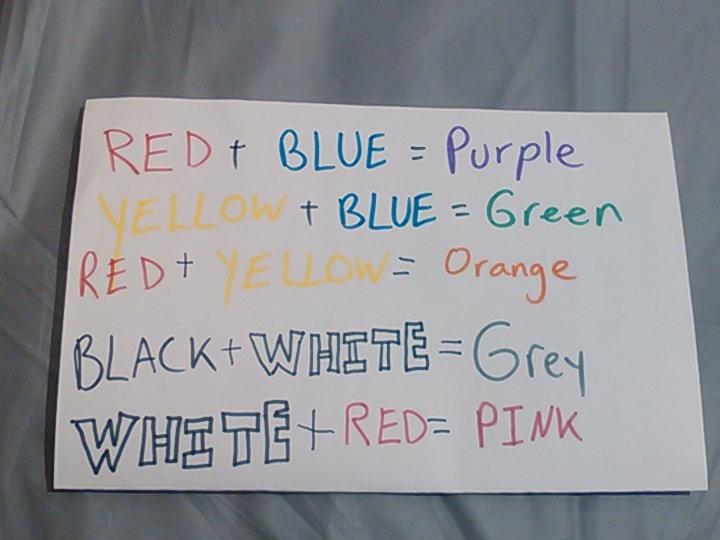 RED + BLUE = Purple
YELLOW + BLUE = Green
RED + YELLOW = Orange
BLACK + WHITE = Grey
WHITE + RED = PINK